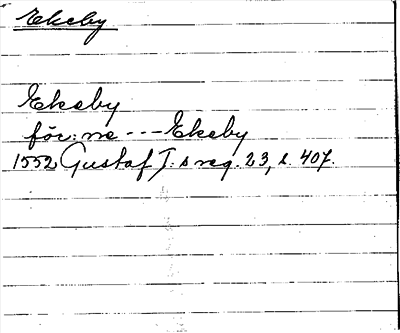 Ekeby
Ekeby
för: ne --- Ekeby
1552 Gustaf I:s reg. 23, s. 407.